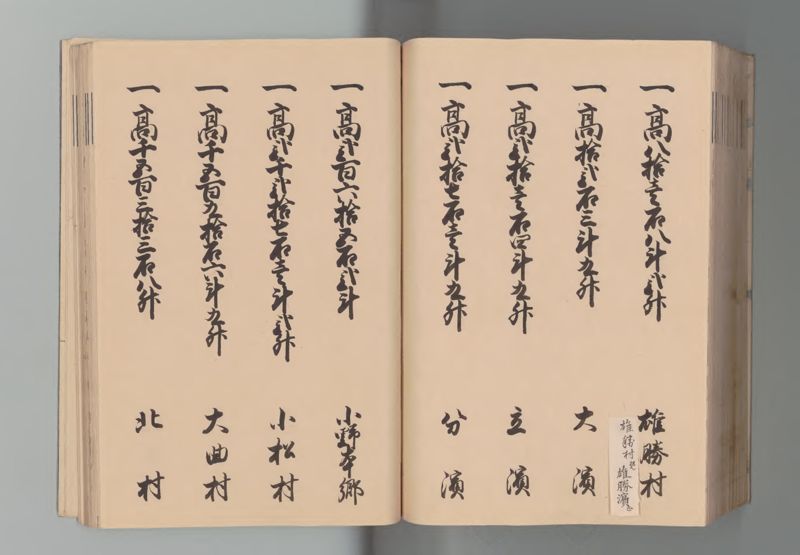 一高八拾壱石八斗弐升 雄勝村
雄勝村
雄勝濱
一高拾弐石三斗九升 大濱
一高弐拾壱石四斗九升 立濱
一高弐拾七石壱斗九升 分濱
一高弐百六拾五石弐斗 小野本郷
一高弐千弐拾七石壱斗弐升 小松村
一高千五百九拾石六斗九升 大曲村
一高千五百三拾三石八升 北村